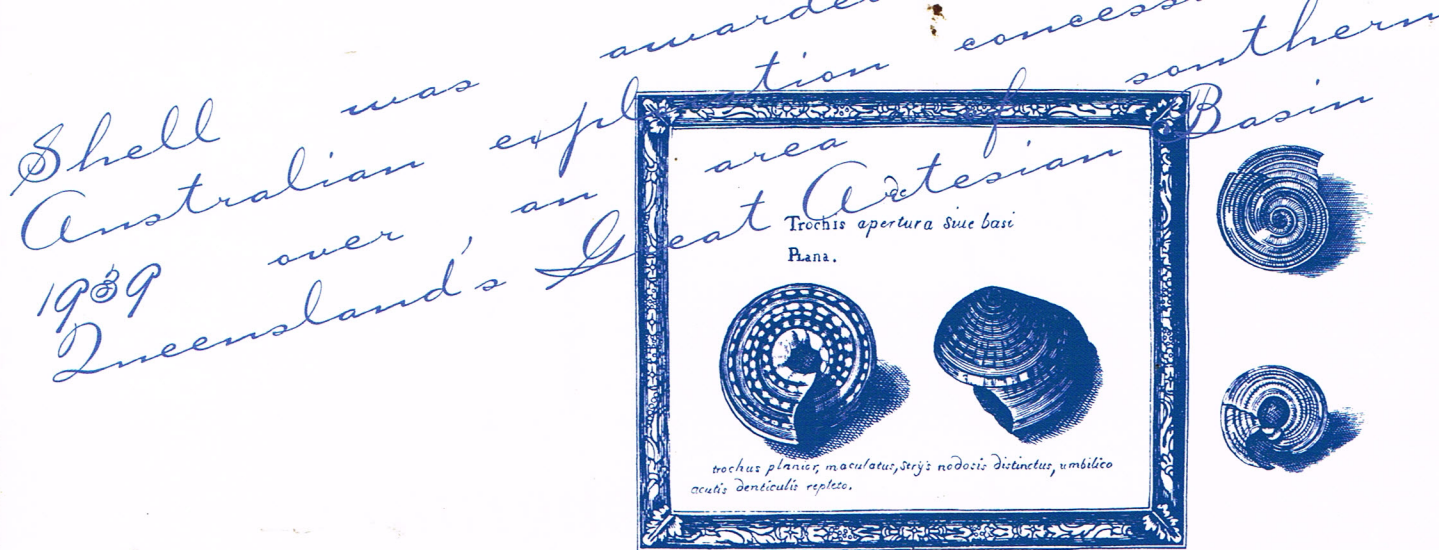 Shell was awarde
Australian expl ation concess
1939 over an area of southern
Queensland's Great Artesian Basin
de
Trochis apertura Siue basi
PLana.
trochus planior, maculatus, Strijs nodosis distinctus, umbilico
acutis denticulis repleto.